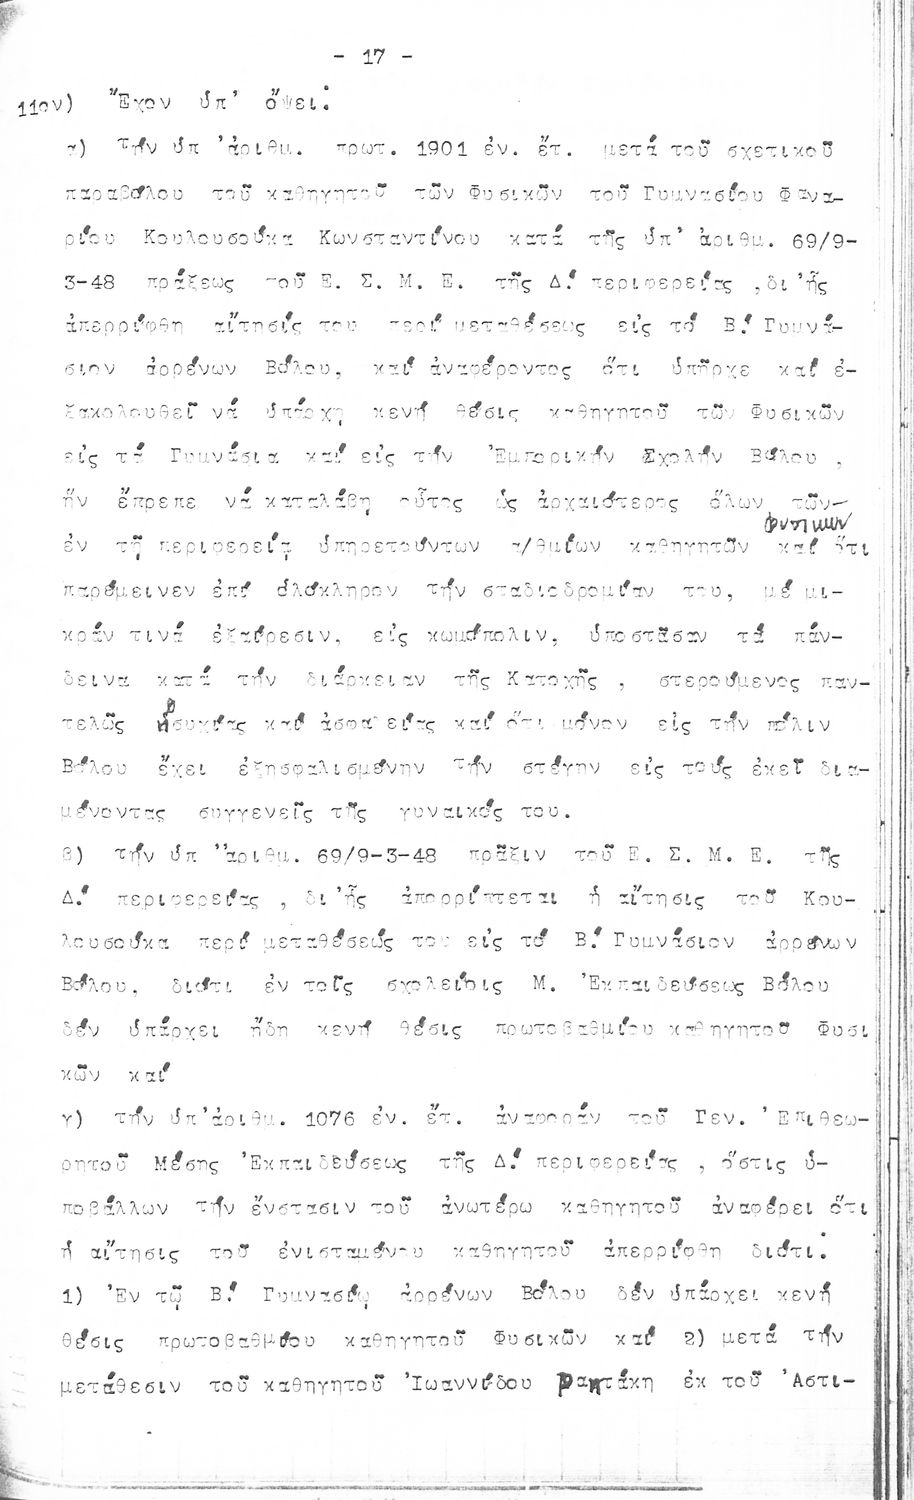 - 17 -
11ον) Ἔχον ὑπ' ὄψει:
α) Τήν ὑπ 'ἀριθμ. πρωτ. 1901 ἐν. ἔτ. μετά τοῦ σχετικοῦ
παραβόλου τοῦ καθηγητοῦ τῶν Φυσικῶν τοῦ Γυμνασίου Φανα-
ρίου Κουλουσούκα Κωνσταντίνου κατά τῆς ὑπ' ἀριθμ. 69/9-
3-48 πράξεως τοῦ Ε. Σ. Μ. Ε. τῆς Δ! περιφερείας ,δι 'ἧς
ἀπερρίφθη αἴτησίς του περί μεταθέσεως εἰς τό Β! Γυμνά-
σιον ἀρρένων Βόλου, καί ἀναφέροντος ὅτι ὑπῆρχε καί ἐ-
ξακολουθεῖ νά ὑπάρχη κενή θέσις καθηγητοῦ τῶν Φυσικῶν
εἰς τά Γυμνάσια καί εἰς τήν Ἐμπορικήν Σχολήν Βόλου ,
ἥν ἔπρεπε νά καταλάβη οὗτος ὡς ἀρχαιότερος ὅλων τῶν-
φυσικῶν
ἐν τῇ περιφερείᾳ ὑπηρετούντων α/θμίων καθηγητῶν καί ὅτι
παρέμεινεν ἐπί ὁλόκληρον τήν σταδιοδρομίαν του, μέ μι-
κράν τινά ἐξαίρεσιν, εἰς κωμόπολιν, ὑποστᾶσαν τά πάν-
δεινα κατά τήν διάρκειαν τῆς Κατοχῆς , στερούμενος παν-
τελῶς ἡσυχίας καί ἀσφαλείας καί ὅτι μόνον εἰς τήν πόλιν
Βόλου ἔχει ἐξησφαλισμένην τήν στέγην εἰς τούς ἐκεῖ δια-
μένοντας συγγενεῖς τῆς γυναικός του.
β) τήν ὑπ 'ἀριθμ. 69/9-3-48 πρᾶξιν τοῦ Ε. Σ. Μ. Ε. τῆς
Δ! περιφερείας , δι 'ἧς ἀπορρίπτεται ἡ αἴτησις τοῦ Κου-
λουσούκα περί μεταθέσεώς του εἰς τό Β! Γυμνάσιον ἀρρένων
Βόλου, διότι ἐν τοῖς σχολείοις Μ. Ἐκπαιδεύσεως Βόλου
δέν ὑπάρχει ἤδη κενή θέσις πρωτοβαθμίου καθηγητοῦ Φυσι
κῶν καί
γ) τήν ὑπ'ἀριθμ. 1076 ἐν. ἔτ. ἀναφοράν τοῦ Γεν. Ἐπιθεω-
ρητοῦ Μέσης Ἐκπαιδεύσεως τῆς Δ! περιφερείας , ὅστις ὑ-
ποβάλλων τήν ἔνστασιν τοῦ ἀνωτέρω καθηγητοῦ ἀναφέρει ὅτι
ἡ αἴτησις τοῦ ἐνισταμένου καθηγητοῦ ἀπερρίφθη διότι:
1) Ἐν τῷ Β! Γυμνασίῳ ἀρρένων Βόλου δέν ὑπάρχει κενή
θέσις πρωτοβαθμίου καθηγητοῦ Φυσικῶν καί 2) μετά τήν
μετάθεσιν τοῦ καθηγητοῦ Ἰωαννίδου Ραπτάκη ἐκ τοῦ Ἀστι-